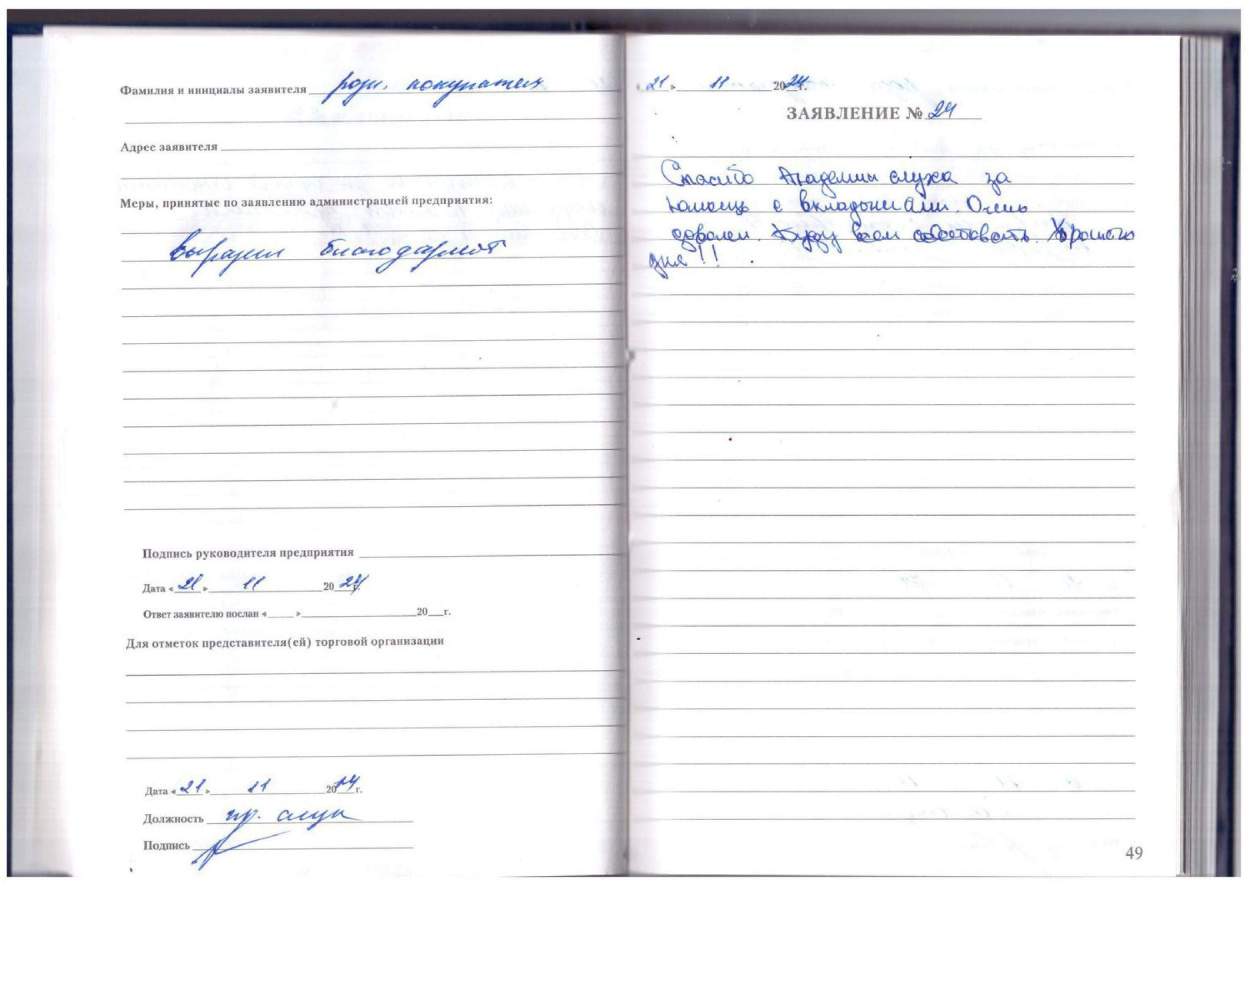 Фамилия и инициалы заявителя
Адрес заявителя
Меры, принятые по заявлению администрацией предприятия:
выразил благодарность
Подпись руководителя предприятия
Дата « 21 » 11 2024 г.
Ответ заявителю послан « » 20 г.
Для отметок представителя(ей) торговой организации
Дата « 21 » 11 20 г.
Должность
Подпись
21 » 11 2024 г.
ЗАЯВЛЕНИЕ № 24
Спасибо Академии слуха за
помощь с вкладышами. Очень
доволен. Буду всем советовать. Хорошего
дня!!
49